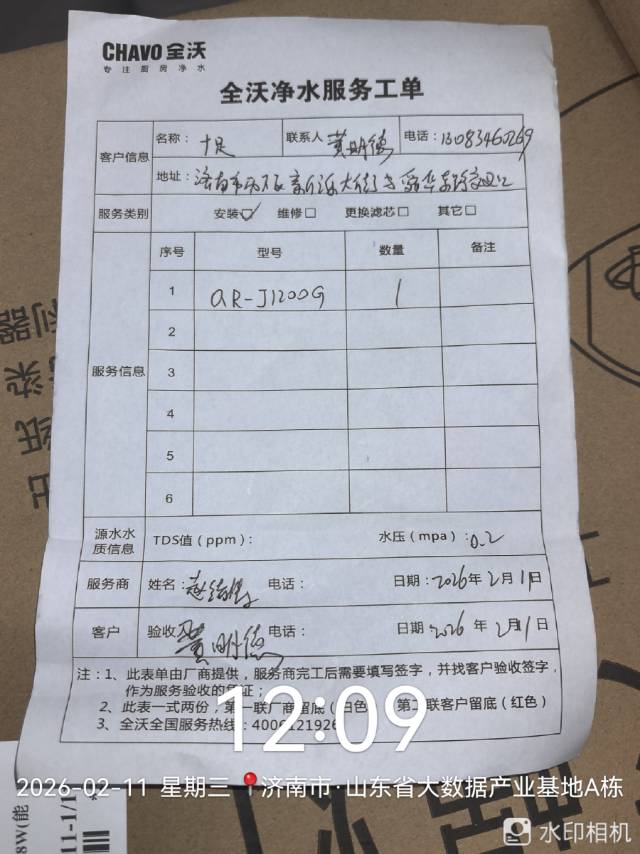 CHAVO 全沃
专注厨房净水
全沃净水服务工单
客户信息
名称：十足 联系人 黄明德 电话：
地址：济南市
服务类别 安装☑ 维修□ 更换滤芯□ 其它□
服务信息
序号 型号 数量 备注
1 QR-J1200G 1
2
3
4
5
6
源水水质信息 TDS值（ppm）： 水压（mpa）：0.2
服务商 姓名： 电话： 日期：2026年2月11日
客户 验收 黄明德 电话： 日期 2026年2月11日
注：1、此表单由厂商提供，服务商完工后需要填写签字，并找客户验收签字，
作为服务验收的凭证；
2、此表一式两份，第一联厂商留底（白色） 第二联客户留底（红色）
3、全沃全国服务热线：
12:09
2026-02-11 星期三 济南市·山东省大数据产业基地A栋
水印相机
利器
染
纸
出
8W(能
11-1/1